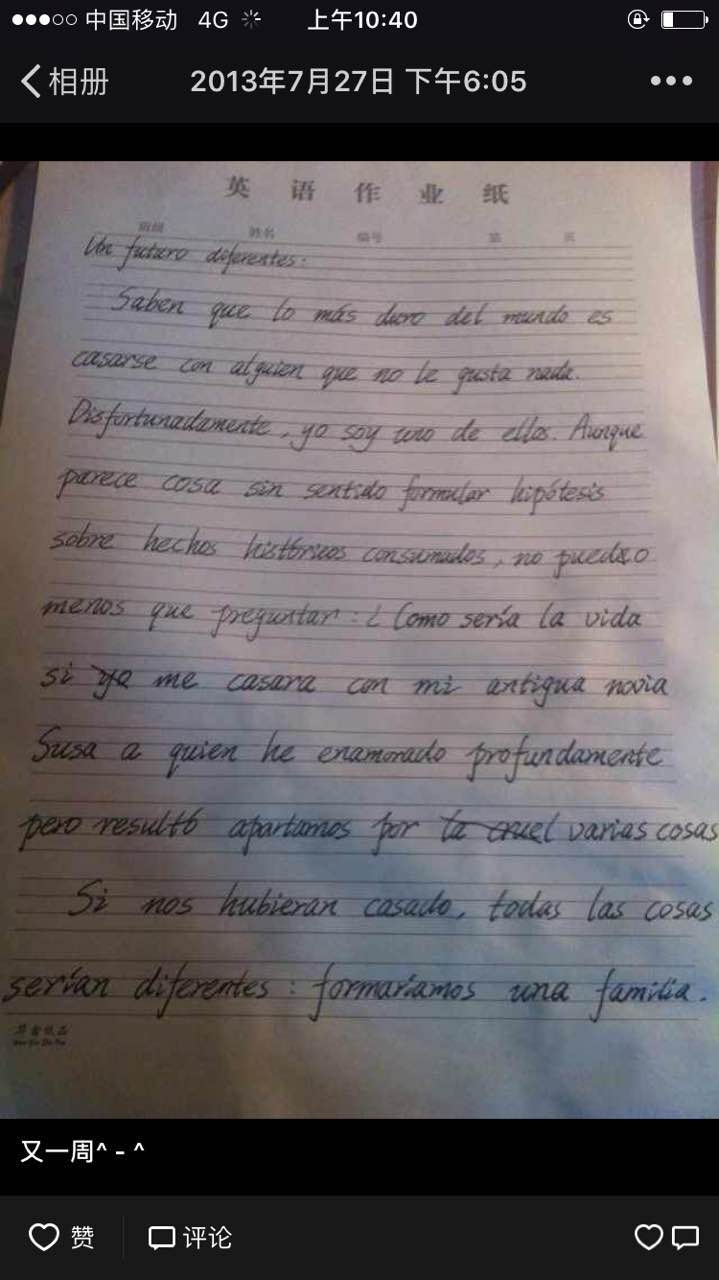 中国移动 4G 上午10:40
相册 2013年7月27日 下午6:05
英语作业纸
班级 姓名 编号 第 页
Un futuro diferentes:
Saben que lo más duro del mundo es
casarse con alguien que no le gusta nada.
Disfortunadamente, yo soy uno de ellos. Aunque
parece cosa sin sentido formular hipótesis
sobre hechos históricos consumados, no puedo
menos que preguntar: ¿Como sería la vida
si yo me casara con mi antigua novia
Susa a quien he enamorado profundamente
pero resultó apartamos por la cruel varias cosas
Si nos hubieran casado, todas las cosas
serían diferentes: formaríamos una familia.
又一周^ - ^
赞 评论